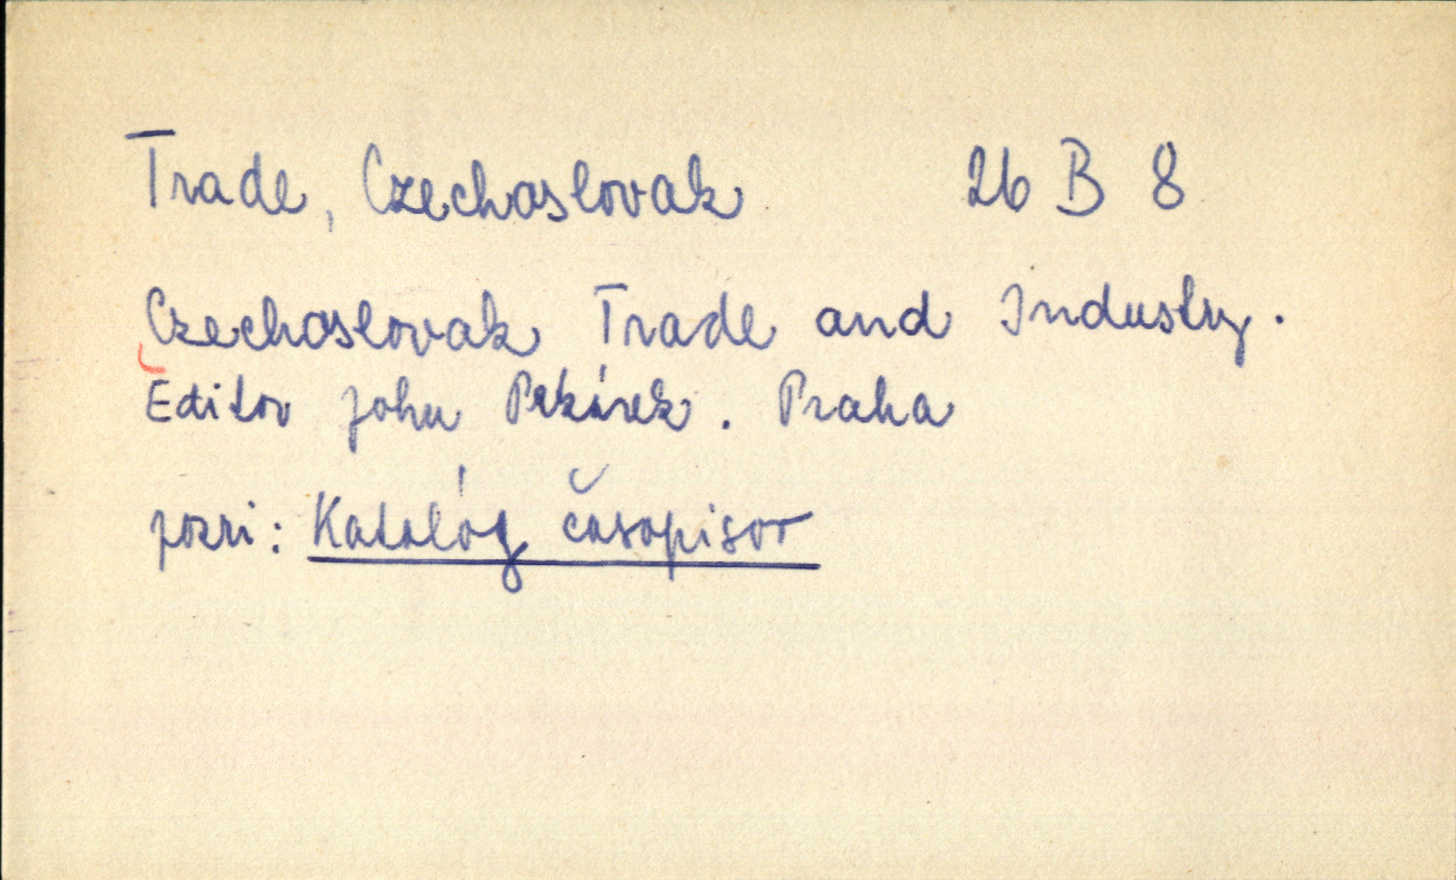 Trade, Czechoslovak 26 B 8
Czechoslovak Trade and Industry.
Editor John Pekárek. Praha
pozri: Katalóg časopisov